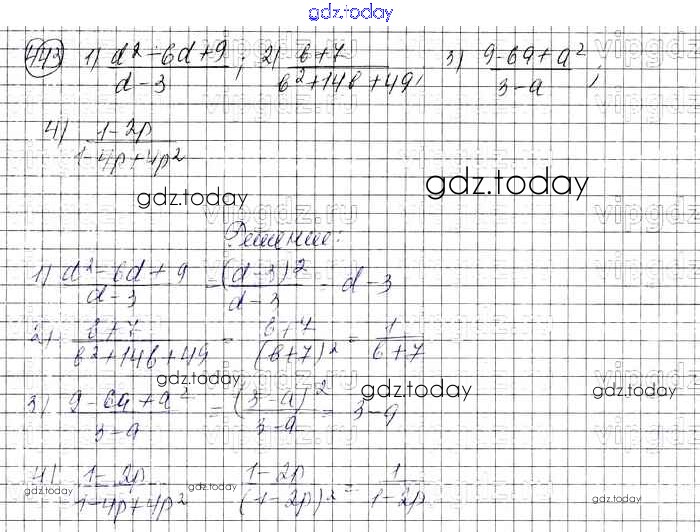 gdz.today
443 1) d² - 6d + 9 / d - 3 ; 2) b + 7 / b² + 14b + 49 , 3) 9 - 6a + a² / 3 - a ;
4) 1 - 2p / 1 - 4p + 4p²
gdz.today gdz.today
vipgdz.ru
Решение:
1) d² - 6d + 9 / d - 3 = (d - 3)² / d - 3 = d - 3
2) b + 7 / b² + 14b + 49 = b + 7 / (b + 7)² = 1 / b + 7
gdz.today gdz.today gdz.today
3) 9 - 6a + a² / 3 - a = (3 - a)² / 3 - a = 3 - a
4) 1 - 2p / 1 - 4p + 4p² 1 - 2p / (1 - 2p)² = 1 / 1 - 2p
gdz.today gdz.today gdz.today